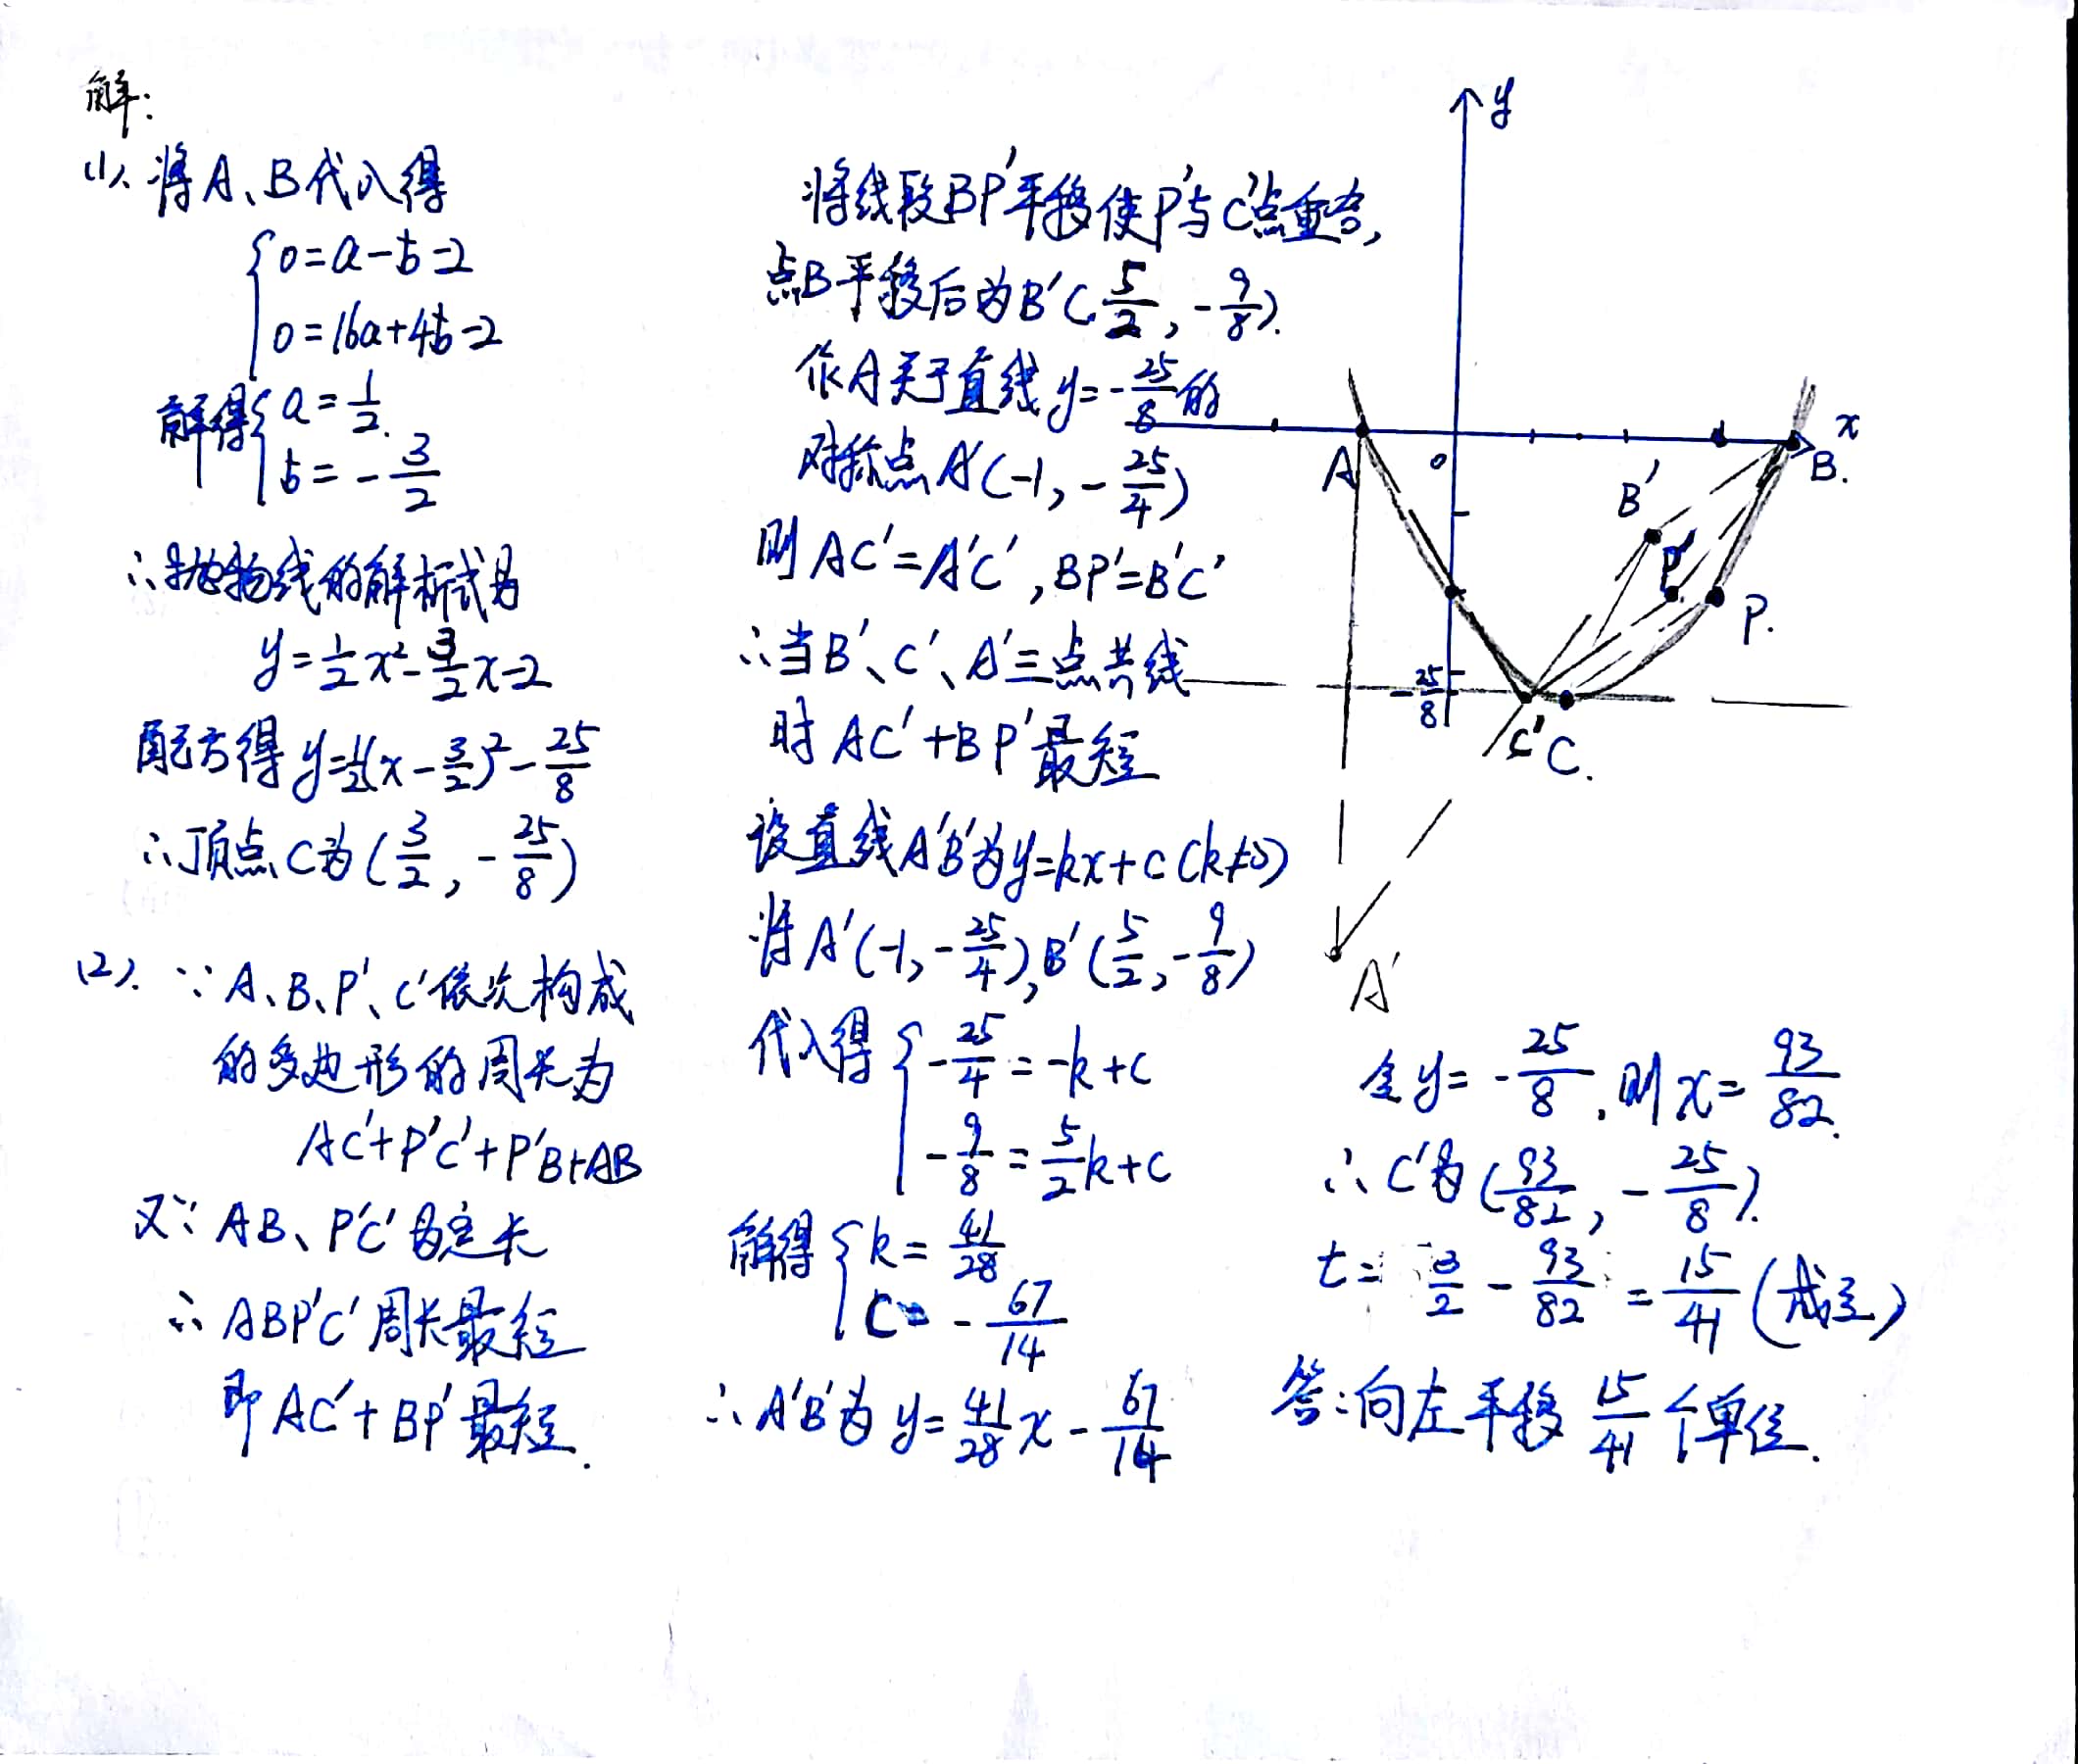 解:
(1). 将A、B代入得
{0=a-b-2
0=16a+4b-2
解得{a=1/2.
b=-3/2
∴抛物线的解析式为
y=1/2x²-3/2x-2
配方得y=1/2(x-3/2)²-25/8
∴顶点C为(3/2,-25/8)
(2). ∵A、B、P'、C'依次构成
的多边形的周长为
AC'+P'C'+P'B+AB
又∵AB、P'C'为定长
∴ABP'C'周长最短
即AC'+BP'最短.
将线段BP'平移使P'与C'点重合,
点B平移后为B'(5/2,-9/8).
作A关于直线y=-25/8的
对称点A'(-1,-25/4)
则AC'=A'C',BP'=B'C'
∴当B'、C'、A'三点共线
时AC'+BP'最短
设直线A'B'为y=kx+c(k≠0)
将A'(-1,-25/4),B'(5/2,-9/8)
代入得{-25/4=-k+c
-9/8=5/2k+c
解得{k=41/28
c=-67/14
∴A'B'为y=41/28x-67/14
y
x
A
o
B.
B'
P'
P.
-25/8
C'
C.
A'
令y=-25/8,则x=93/82.
∴C'为(93/82,-25/8).
t=3/2-93/82=15/41(成立)
答:向左平移15/41个单位.